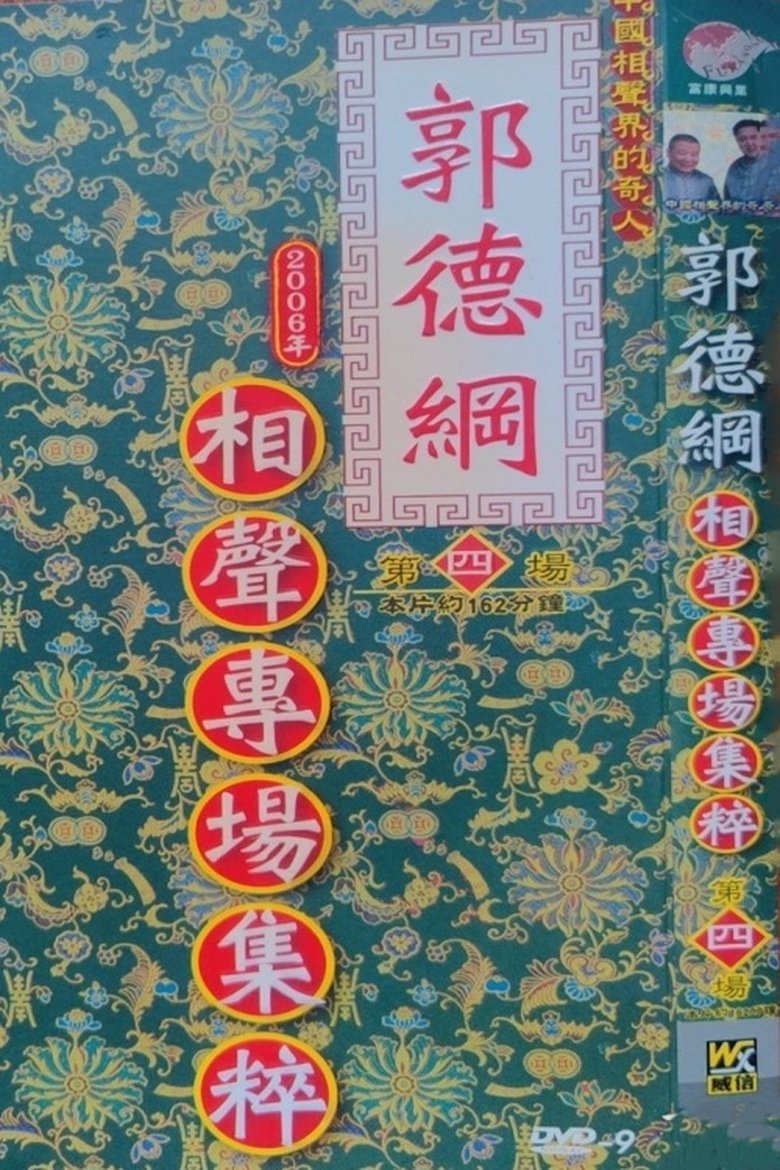 中國相聲界的奇人
郭德綱
2006年
相聲專場集粹
第四場
本片約162分鐘
DVD-9
富康興業
中國相聲界的奇
郭德綱
相聲專場集粹
第四場
WX
威信